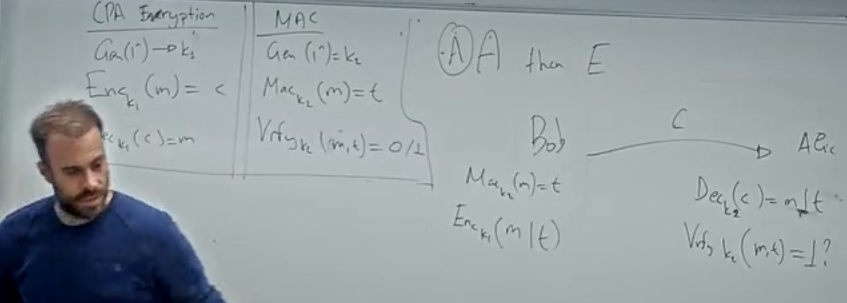 CPA Encryption
Gen(1^n)→k_1
Enc_{k_1}(m) = c
c_{k_1}(c)=m
MAC
Gen(1^n)=k_2
Mac_{k_2}(m)=t
Vrfy_{k_2}(m,t)=0/1
A A then E
Bob
C
Alice
Mac_{k_2}(m)=t
Enc_{k_1}(m|t)
Dec_{k_2}(c)=m|t
Vrfy_{k_2}(m,t)=1?